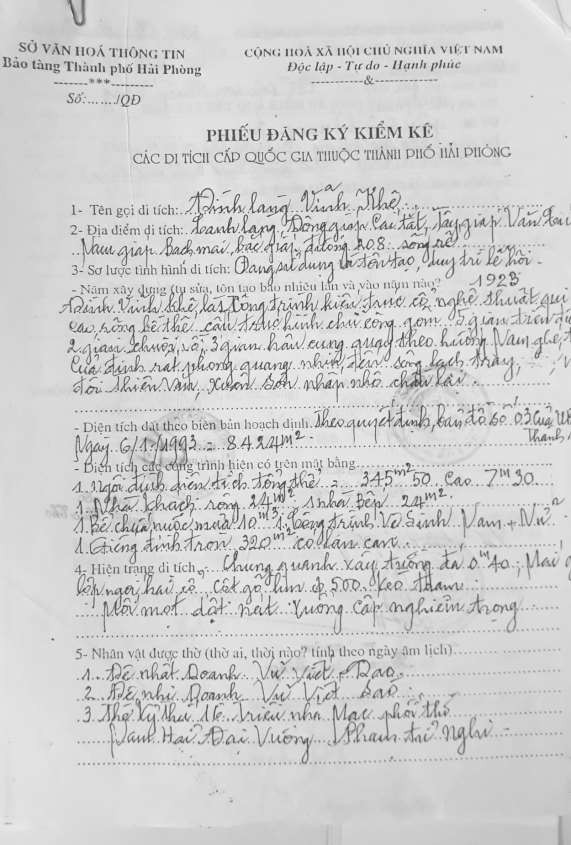 SỞ VĂN HOÁ THÔNG TIN
Bảo tàng Thành phố Hải Phòng
--------***---------
Số:....../QĐ
CỘNG HOÀ XÃ HỘI CHỦ NGHĨA VIỆT NAM
Độc lập - Tự do - Hạnh phúc
------------&--------------
PHIẾU ĐĂNG KÝ KIỂM KÊ
CÁC DI TÍCH CẤP QUỐC GIA THUỘC THÀNH PHỐ HẢI PHÒNG
1- Tên gọi di tích: Đình làng Vĩnh Khê
2- Địa điểm di tích: Doanh lang, Đông giáp Cái tắt, Tây giáp Vân
Nam giáp Bạch mai, bắc giáp đường no 8 sông rế
3- Sơ lược tình hình di tích: Đang sử dụng và tôn tạo, duy trì lễ hội.
- Năm xây dựng (tu sửa, tôn tạo bao nhiêu lần và vào năm nào? 1923
Đình Vĩnh Khê là công trình kiến trúc cổ nghệ thuật qui
cao, rộng bề thế cấu trúc hình chữ công gồm 5 gian tiền
2 gian chuôi vồ, 3 gian hậu cung quay theo hướng Nam ghé
Cửa đình rất phong quang nhìn đến sông lạch tray,
đồi thiên Văn, Xuân Sơn nhấp nhô
- Diện tích đất theo biên bản hoạch định. Theo quyết định, bản đồ số 03 của
Ngày 6/1/1993 = 8.424m². Thanh
- Diện tích các công trình hiện có trên mặt bằng
1. Ngôi đình diện tích tổng thể = 345m² 50 Cao 7m30
1. Nhà khách rộng 24m² 1 nhà bên 24m².
1. Bể chứa nước mưa 10m³. 1. Công trình vệ sinh Nam + Nữ
1. Giếng đình tròn 320m² có lan can
4- Hiện trạng di tích: Chung quanh xây tường đá 0m40, Mái
lợp ngói hài cổ. Cột gỗ lim ф 500. Kèo
Mối mọt dột nát Xuống cấp nghiêm trọng
5- Nhân vật được thờ (thờ ai, thời nào? tính theo ngày âm lịch)
1. Đệ nhất Doanh Vũ Viết Dao
2. Đệ nhị Doanh Vũ Viết
3. Thế kỷ thứ 16 Triều nhà Mạc phối thờ
Nam Hải Đại Vương Phạm tử Nghi